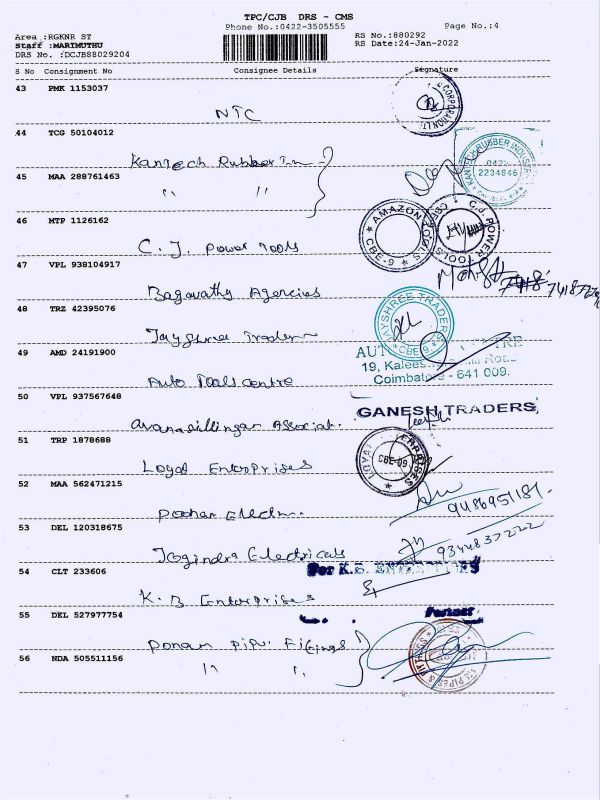 TPC/CJB DRS - CMS
Phone No.:0422-3505555 Page No.:4
Area :RGKNR ST RS No.:880292
Staff :MARIMUTHU RS Date:24-Jan-2022
DRS No. :DCJB88029204
S No Consignment No Consignee Details Signature
43 PMK 1153037
NTC
CORPORATION
44 TCG 50104012
Kantech Rubber In
RUBBER INDUSTR
0422
2234646
45 MAA 288761463
" "
46 MTP 1126162
C. J Power Tools
AMAZON TOOLS
CBE-9
C.J. POWER TOOLS
CBE
47 VPL 938104917
Bagavathy Agencies
48 TRZ 42395076
Jayshree Traders
JAYSHREE TRADERS
CBE-9
49 AMD 24191900
Auto Tools Centre
19, Kalees Road
Coimbatore - 641 009.
50 VPL 937567648
GANESH TRADERS,
51 TRP 1878688
Loyal Enterprises
LOYAL ENTERPRISES
CBE-09
52 MAA 562471215
9486951181.
53 DEL 120318675
Jogindra Electricals
9344837222
54 CLT 233606
For K.B. ENTERPRISES
K. B Enterprises
55 DEL 527977754
Partner
56 NDA 505511156
" "
PIPES &